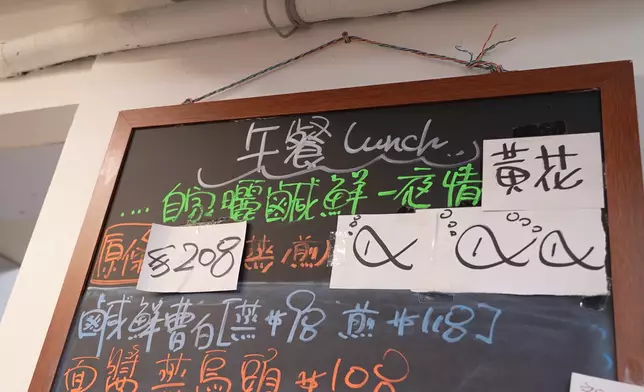 午餐 Lunch
....自家曬鹹鮮一夜情 黃花
原條 $208 蒸/煎
鹹鮮曹白[蒸#98 煎#118]
面醬蒸烏頭#108